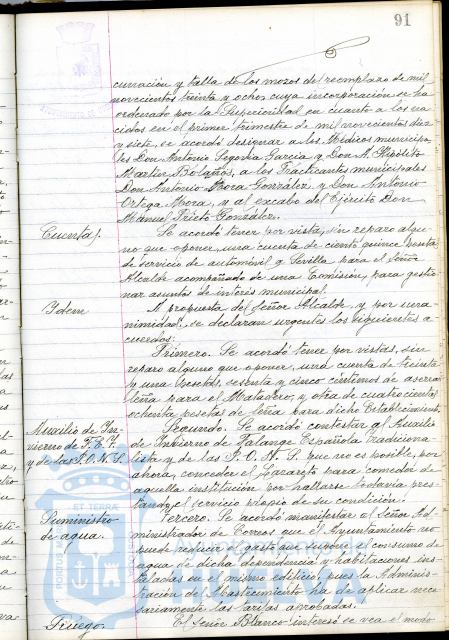 91
curación y talla de los mozos del reemplazo de mil
novecientos treinta y ocho, cuya incorporación se ha
ordenado por la Superioridad en cuanto a los na-
cidos en el primer trimestre de mil novecientos diez
y siete, se acordó designar a los Médicos municipa-
les Don Antonio Segovia García y Don A. Hipólito
Martín Bolaños, a los Practicantes municipales
Don Antonio Mora González y Don Antonio
Ortega Mora, y al encabo del Ejército Don
Manuel Prieto González.
Cuenta.
Se acordó tener por vista, sin reparo algu-
no que oponer, una cuenta de ciento quince pesetas
de servicio de automóvil a Sevilla para el Señor
Alcalde acompañado de una Comisión, para gestio-
nar asuntos de interés municipal.
Idem
A propuesta del Señor Alcalde, y por una-
nimidad, se declaran urgentes los siguientes a-
cuerdos:
Primero. Se acordó tener por vistas, sin
reparo alguno que oponer, una cuenta de treinta
y una pesetas, sesenta y cinco céntimos de
leña para el Matadero, y otra de cuatrocientas
ochenta pesetas de leña para dicho Establecimiento.
Auxilio de In-
vierno de F.E.T.
y de las J.O.N.S.
Segundo. Se acordó contestar al Auxilio
de Invierno de Falange Española Tradiciona-
lista y de las J.O.N.S. que no es posible, por
ahora, conceder el Lazareto para comedor de
aquella institución por hallarse todavía pres-
tando el servicio propio de su condición.
Suministro
de agua.
Tercero. Se acordó manifestar al Señor Ad-
ministrador de Correos que el Ayuntamiento no
puede reducir el gasto que supone el consumo de
agua de dicha dependencia y habitaciones ins-
taladas en el mismo edificio, pues la Adminis-
tración de Abastecimiento ha de aplicar nece-
sariamente las tarifas aprobadas.
Ruego.
El Señor Blanco interesó se vea el modo
ET TERRA